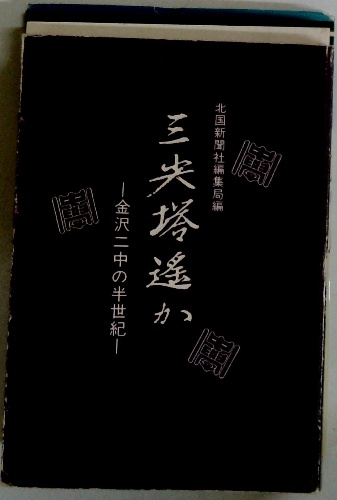 北国新聞社編集局編
三尖塔遙か
―金沢二中の半世紀―